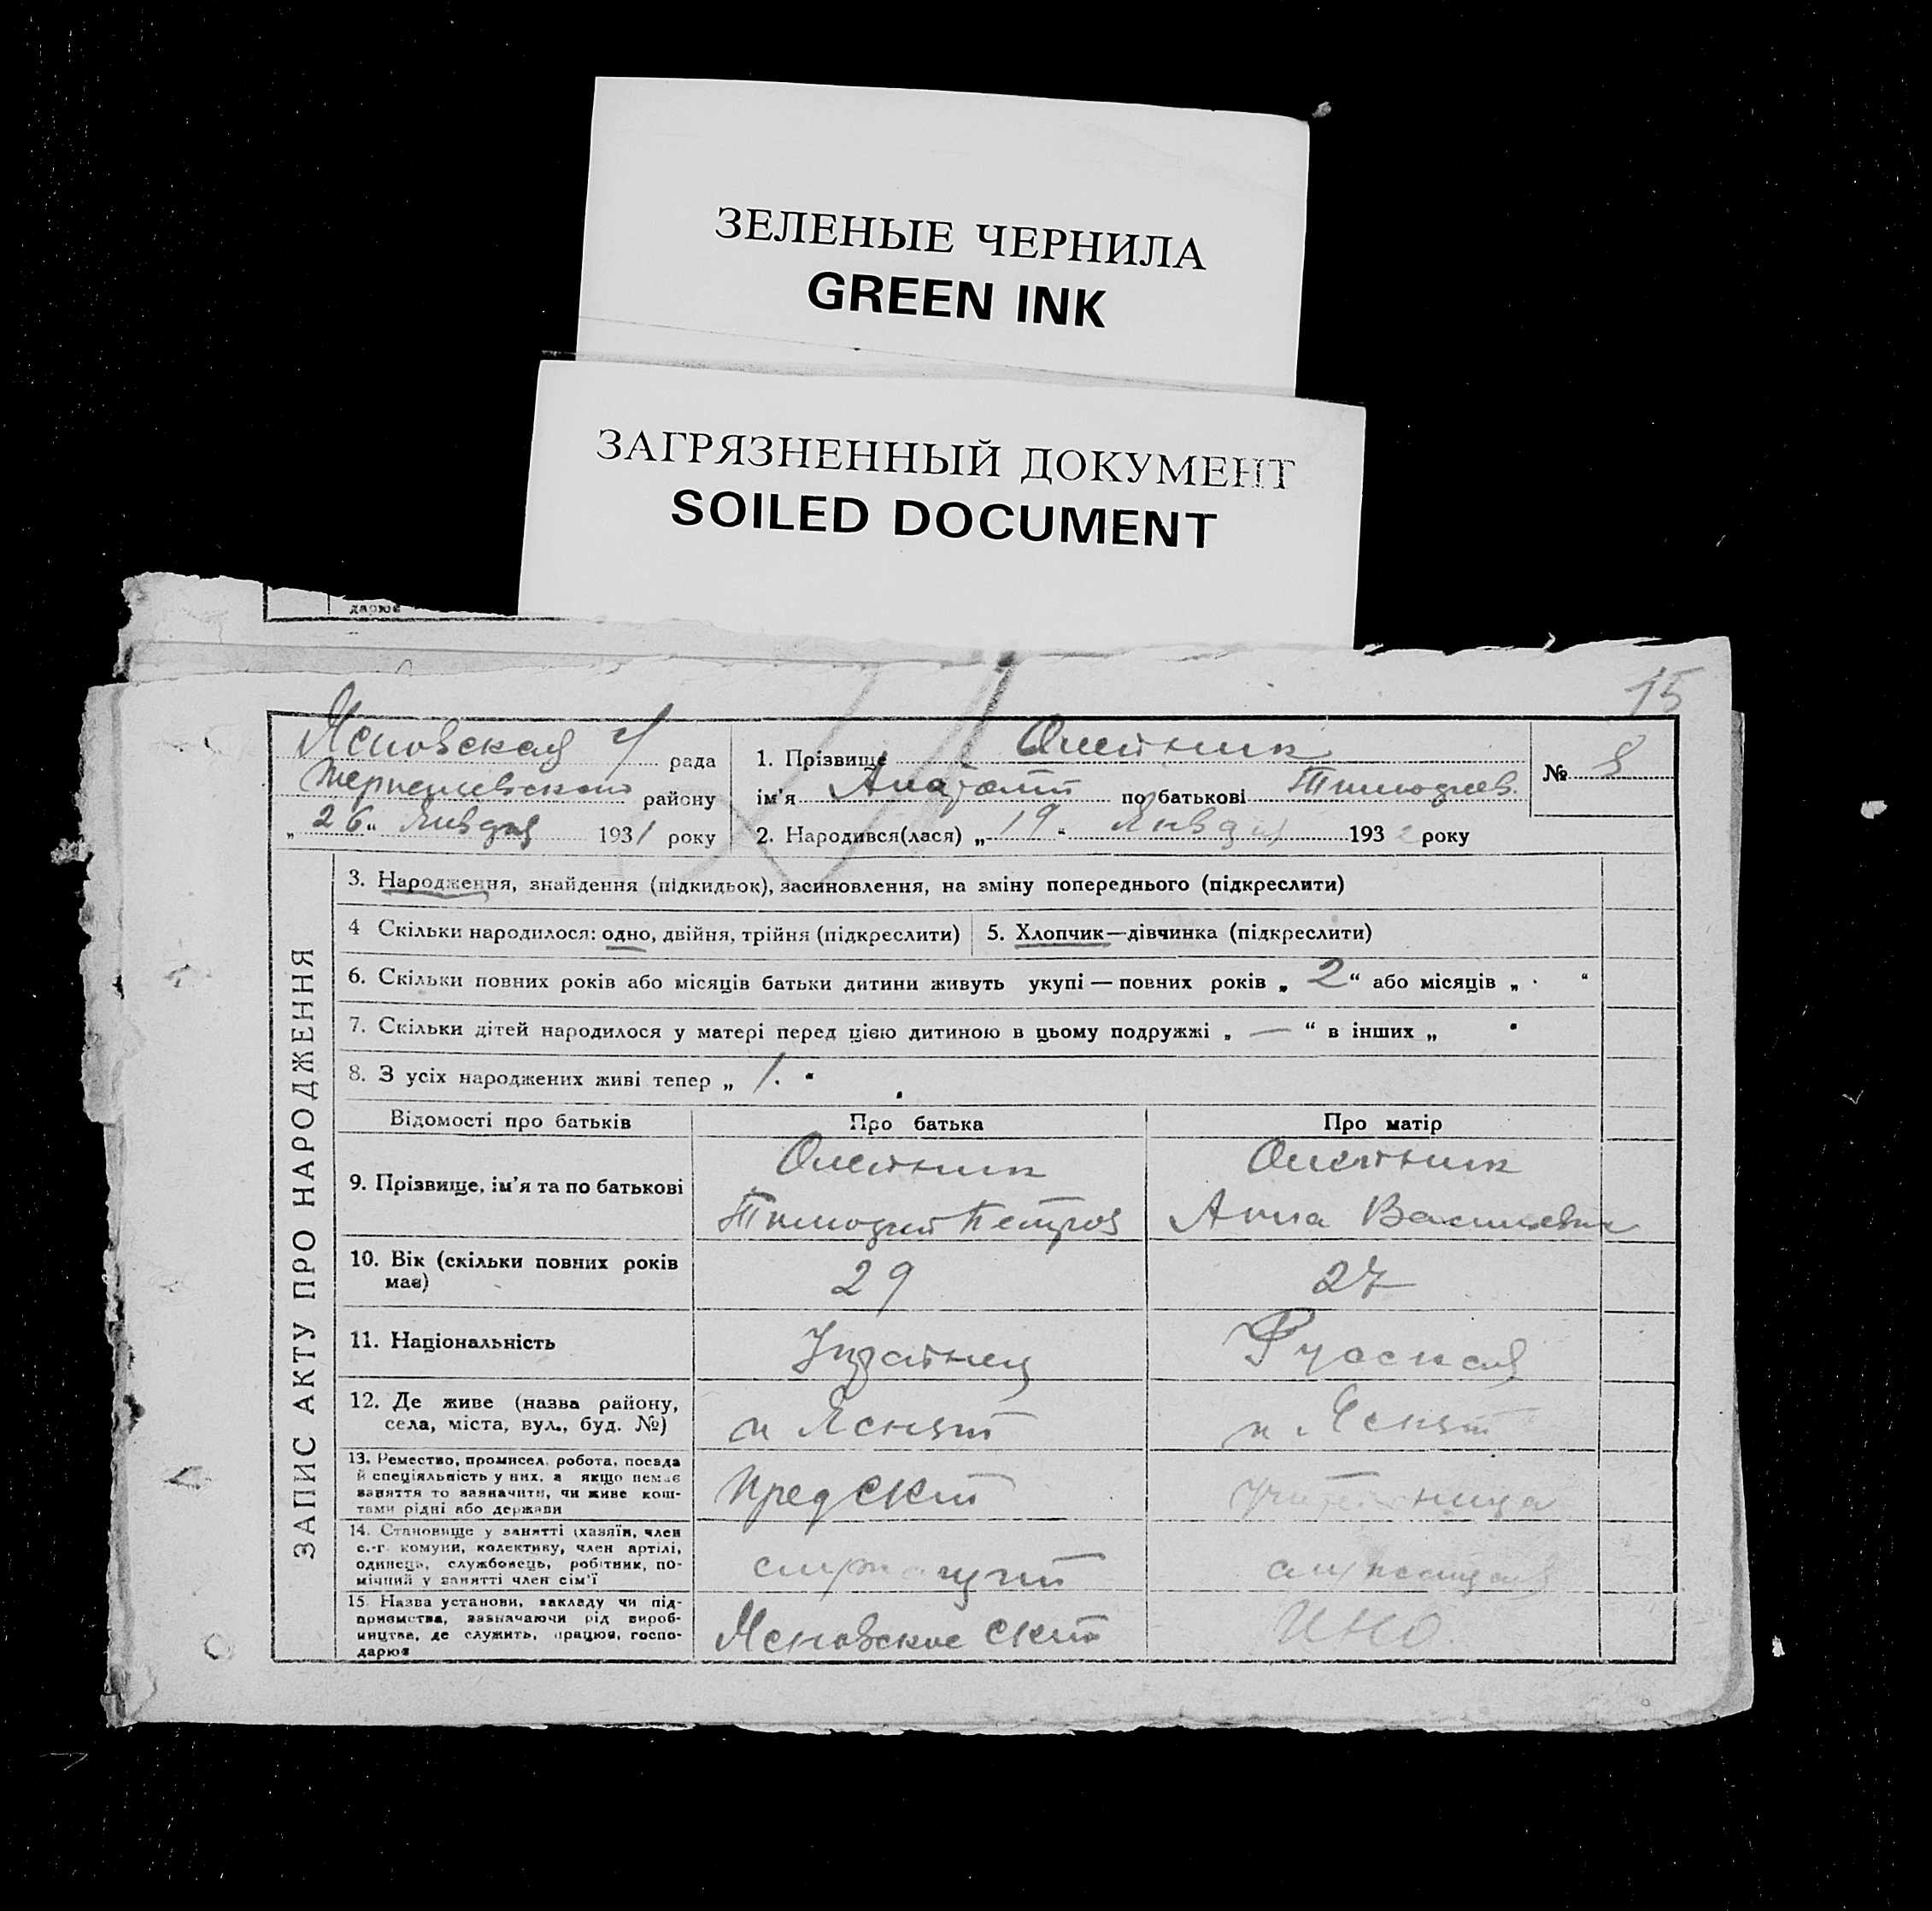 ЗЕЛЕНЫЕ ЧЕРНИЛА
GREEN INK
ЗАГРЯЗНЕННЫЙ ДОКУМЕНТ
SOILED DOCUMENT
дарює
15
рада
району
„26“ Января 1931 року
1. Прізвище Олейник
ім'я по батькові
2. Народився(лася) „19“ Января 193 року
№ 8
ЗАПИС АКТУ ПРО НАРОДЖЕННЯ
3. Народження, знайдення (підкидьок), засиновлення, на зміну попереднього (підкреслити)
4 Скільки народилося: одно, двійня, трійня (підкреслити)
5. Хлопчик—дівчинка (підкреслити)
6. Скільки повних років або місяців батьки дитини живуть укупі — повних років „ 2 “ або місяців „ “
7. Скільки дітей народилося у матері перед цією дитиною в цьому подружжі „ — “ в інших „ “
8. З усіх народжених живі тепер „ 1. “
Відомості про батьків
Про батька
Про матір
9. Прізвище, ім'я та по батькові
Олейник
Тимофей Петров
Олейник
Анна Васильевн
10. Вік (скільки повних років має)
29
27
11. Національність
Украинец
Русская
12. Де живе (назва району, села, міста, вул., буд. №)
13. Ремество, промисел, робота, посада й спеціяльність у них, а якщо немає заняття то зазначити, чи живе коштами рідні або держави
учительница
14. Становище у занятті (хазяїн, член с.-г. комуни, колективу, член артілі, одинець, службовець, робітник, помічний у занятті член сім'ї
служащий
служащая
15. Назва установи, закладу чи підприємства, зазначаючи рід виробництва, де служить, працює, господарює
ИНО